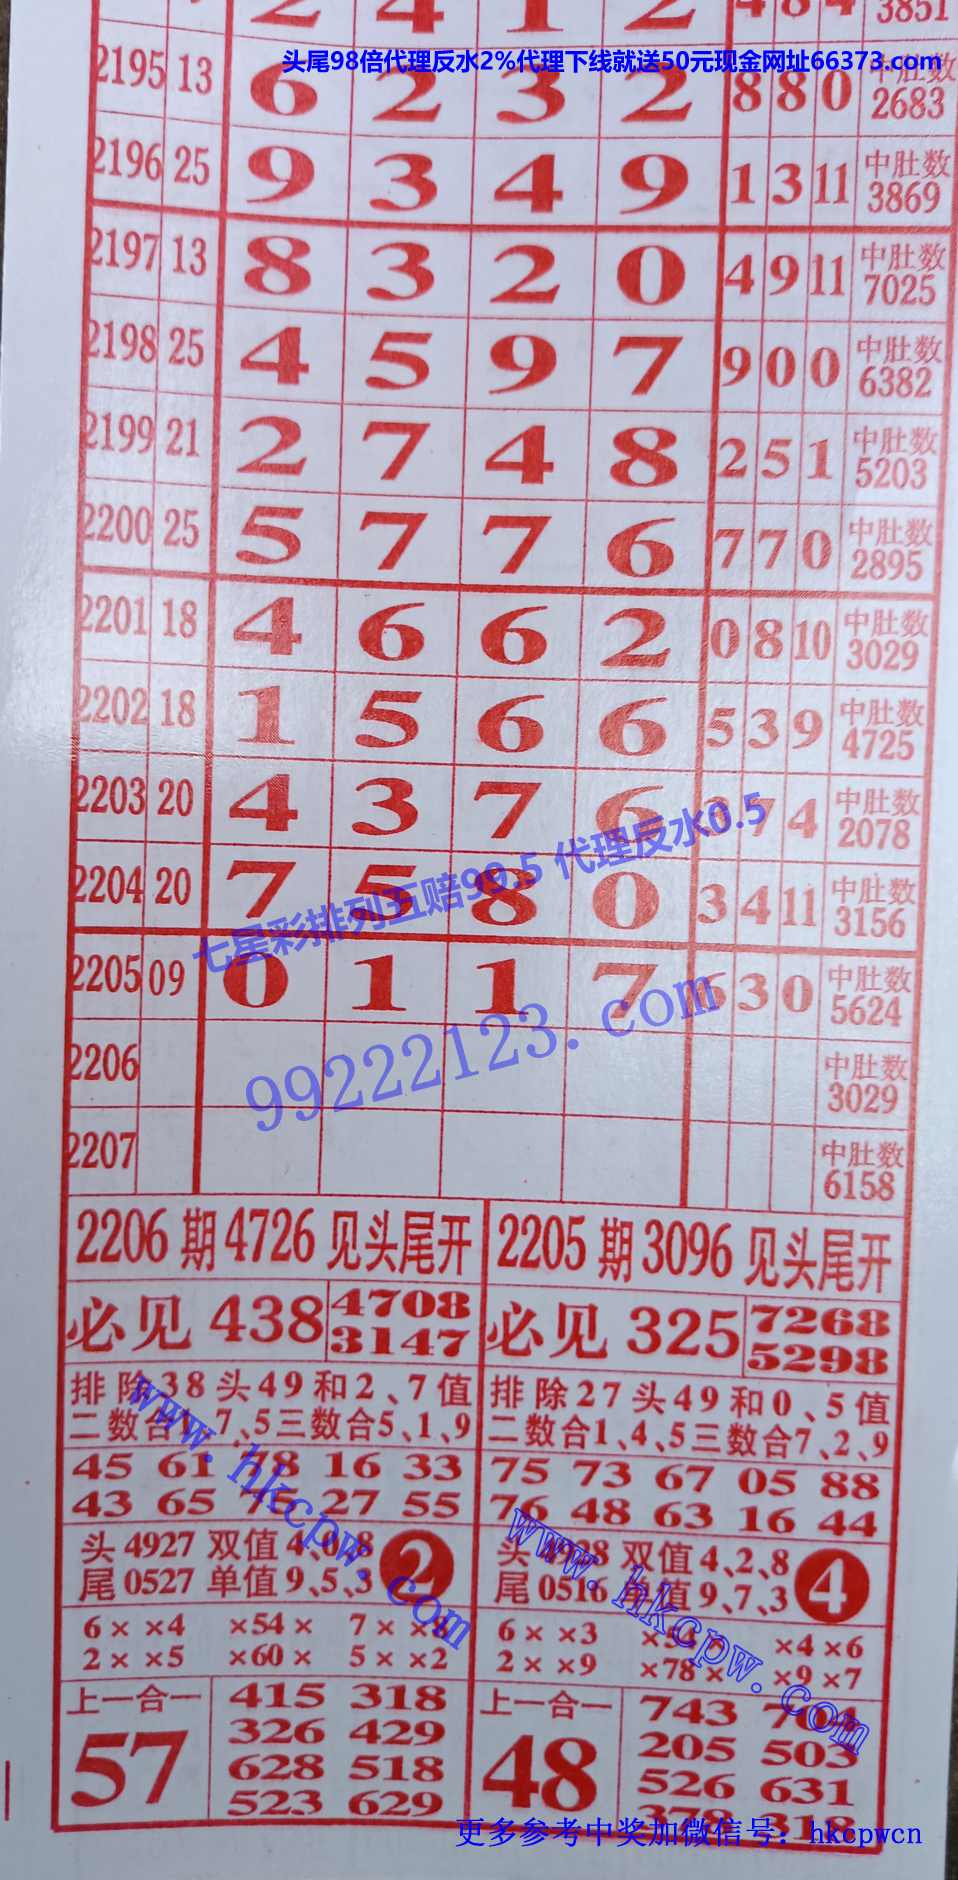 2 4 1 2 4 8 4 3851
头尾98倍代理反水2%代理下线就送50元现金网址66373.com
2195 13 6 2 3 2 8 8 0 中肚数 2683
2196 25 9 3 4 9 1 3 11 中肚数 3869
2197 13 8 3 2 0 4 9 11 中肚数 7025
2198 25 4 5 9 7 9 0 0 中肚数 6382
2199 21 2 7 4 8 2 5 1 中肚数 5203
2200 25 5 7 7 6 7 7 0 中肚数 2895
2201 18 4 6 6 2 0 8 10 中肚数 3029
2202 18 1 5 6 6 5 3 9 中肚数 4725
2203 20 4 3 7 6 7 4 中肚数 2078
七星彩排列五赔99.5 代理反水0.5
2204 20 7 5 8 0 3 4 11 中肚数 3156
2205 09 0 1 1 7 6 3 0 中肚数 5624
99222123.com
2206 中肚数 3029
2207 中肚数 6158
2206期4726见头尾开
必见 438 4708
3147
排除38头49和2、7值
二数合1、7、5三数合5、1、9
45 61 78 16 33
43 65 75 27 55
头4927 双值4、0、8
尾0527 单值9、5、3
2
6××4 ×54× 7××8
2××5 ×60× 5××2
上一合一
57
415 318
326 429
628 518
523 629
www.hkcpw.com
2205期3096见头尾开
必见 325 7268
5298
排除27头49和0、5值
二数合1、4、5三数合7、2、9
75 73 67 05 88
76 48 63 16 44
头4938 双值4、2、8
尾0516 单值9、7、3
4
6××3 ×54× ×4×6
2××9 ×78× ×9×7
上一合一
48
743
205 503
526 631
378 318
www.hkcpw.com
更多参考中奖加微信号：hkcpwcn